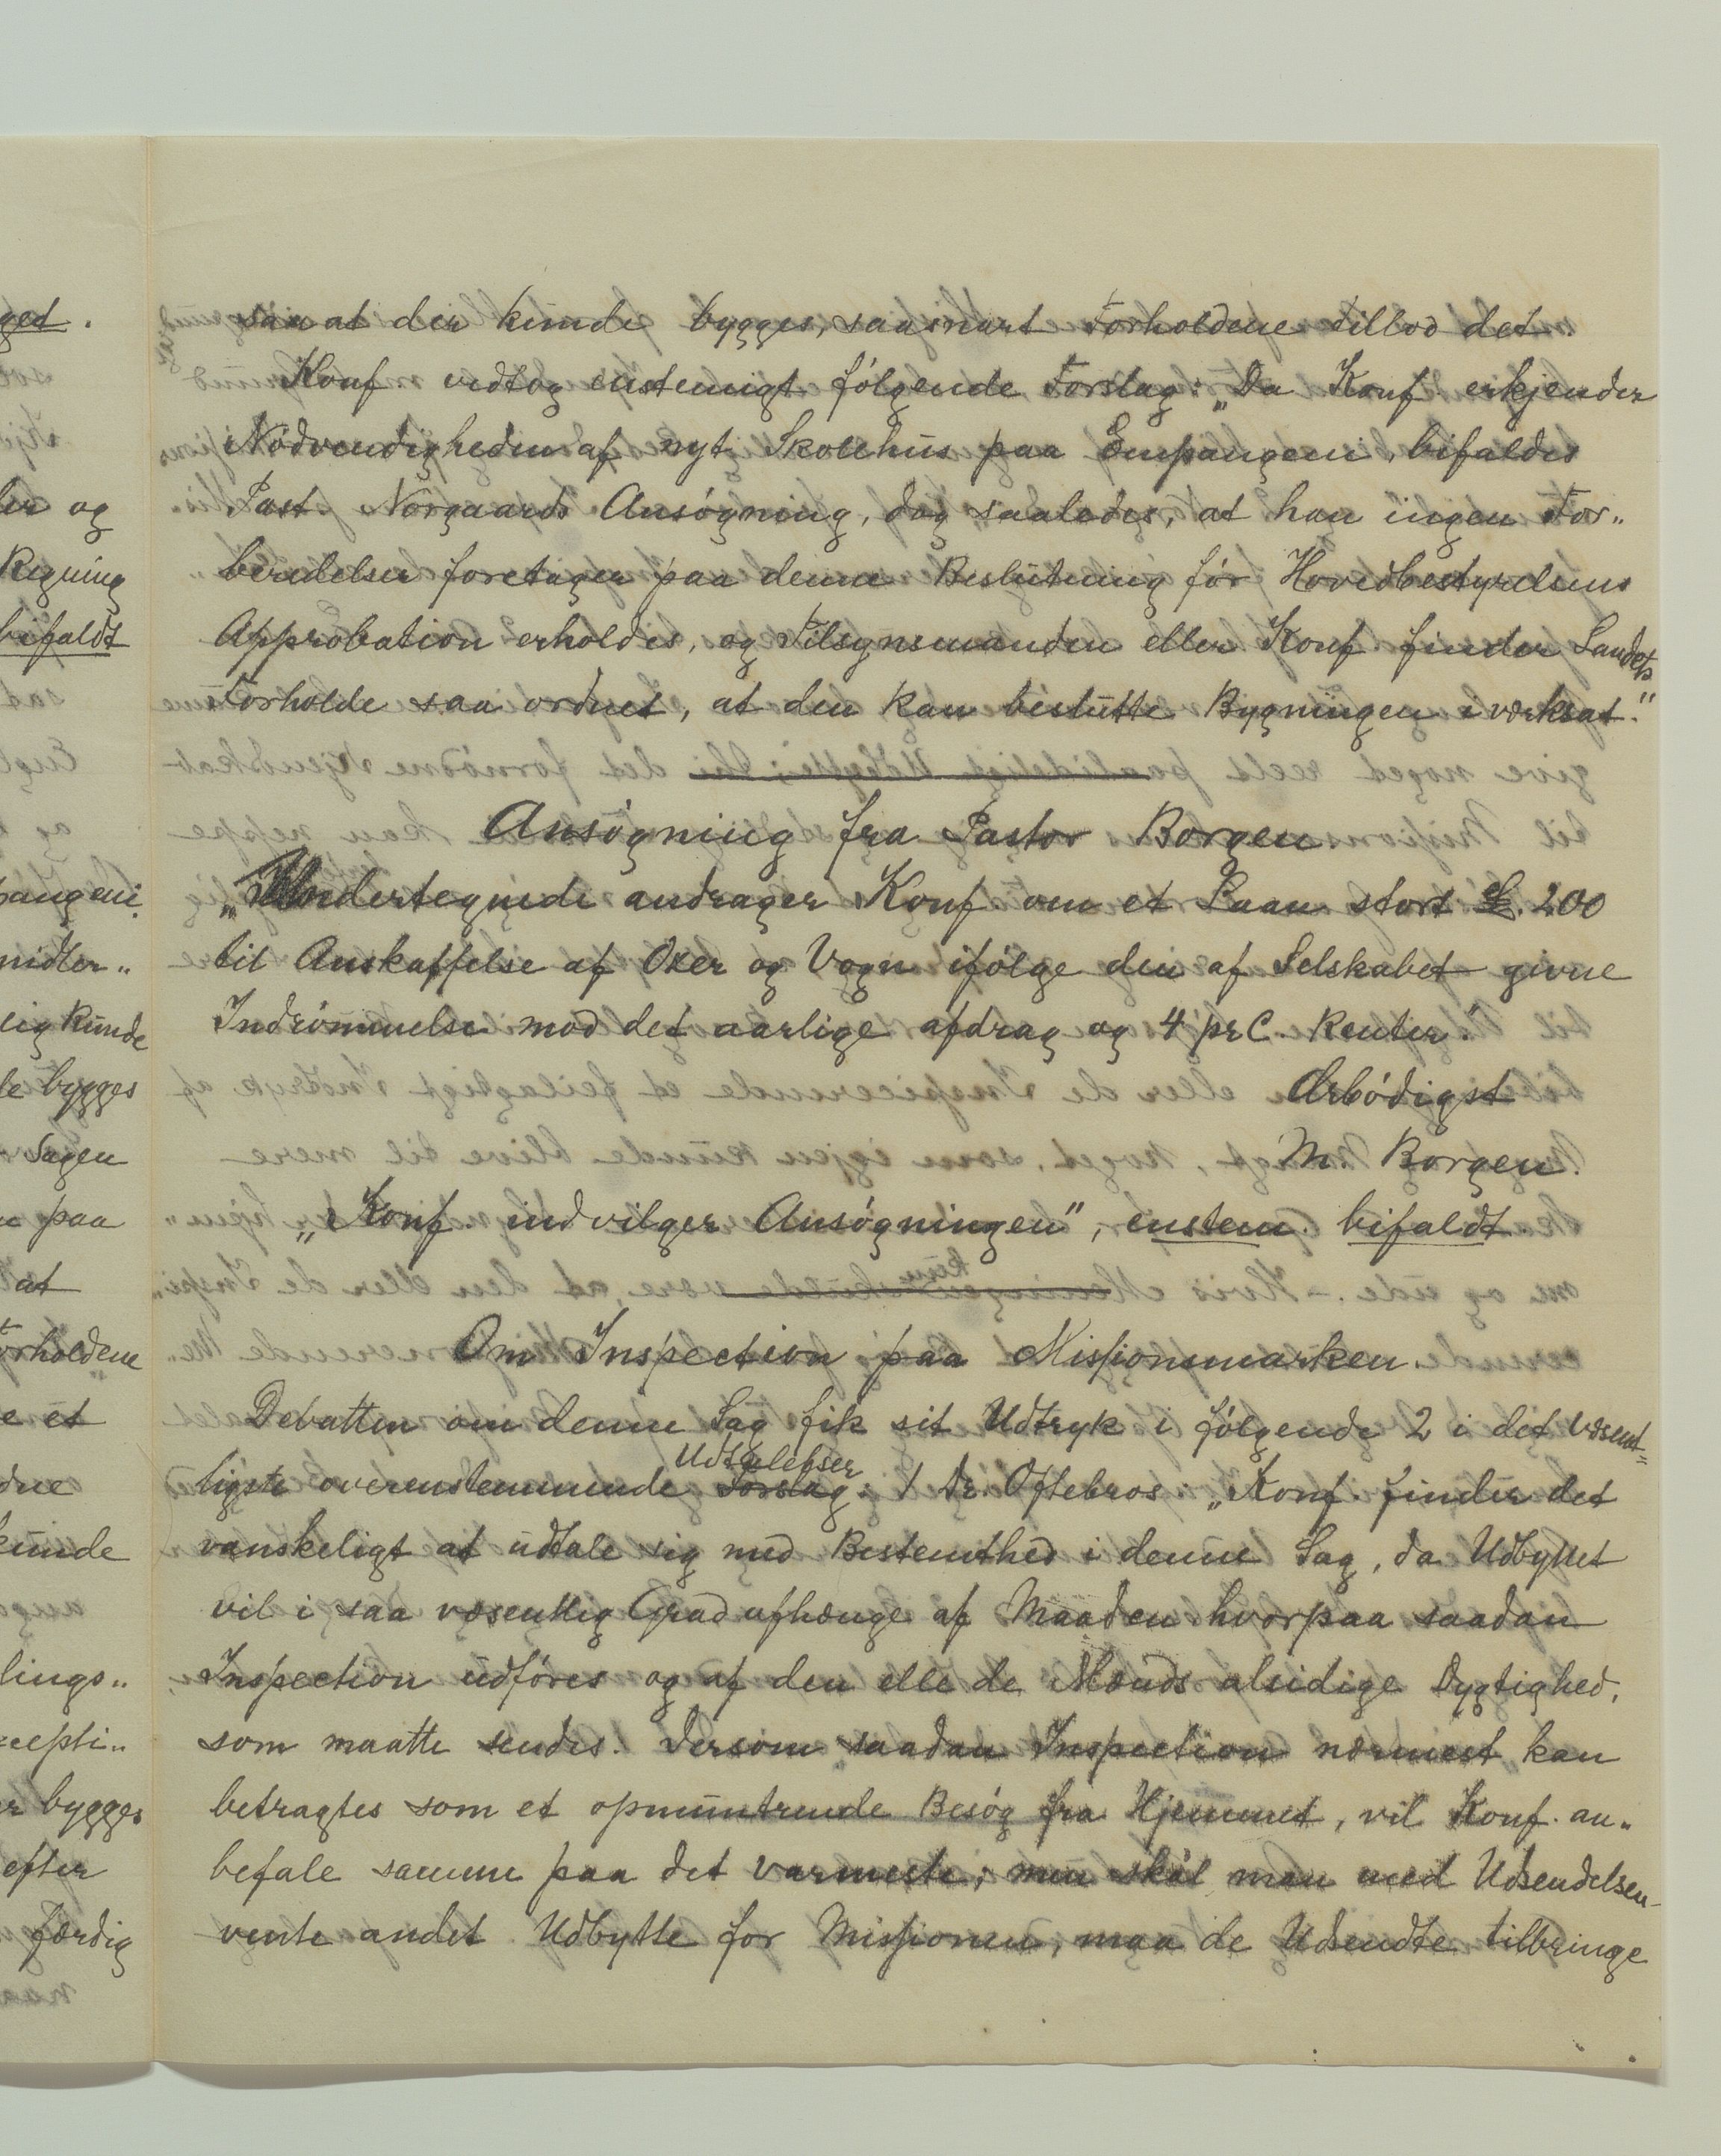 saa at der kunde bygges, saasnart Forholdene tillod det.
Konf vedtog enstemigt følgende Forslag: „Da Konf erkjender
Nødvendigheden af nyt Skolehus paa Empangeni, bifaldes
Past. Norgaards Ansøgning, dog saaledes, at han ingen For„
beredelser foretager paa denne Beslutning før Hovedbestyrelsens
Approbation erholdes, og Tilsynsmanden eller Konf finder Landets
Forholde saa ordnet, at den kan beslutte Bygningen iværksat."
Ansøgning fra Pastor Borgen
„Undertegnede andrager Konf om et Laan stort £. 200
til Anskaffelse af Oxer og Vogn ifølge den af Selskabet givne
Indrømmelse mod det aarlige afdrag og 4 prC. Renter."
Ærbødigst
M. Borgen.
„Konf. indvilger Ansøgningen", enstem. bifaldt.
Om Inspection paa Missionsmarken.
Debatten om denne Sag fik sit Udtryk i følgende 2 i det væsent=
ligste overenstemmende Forslag Udtalelser: 1 Fr. Oftebros „Konf. finder det
vanskeligt at udtale sig med Bestemthed i denne Sag, da Udbyttet
vil i saa væsentlig Grad afhænge af Maaden hvorpaa saadan
Inspection udføres og af den elle de Mænds alsidige Dygtighed,
som maatte sendes. Dersom saadan Inspection nærmest kan
betragtes som et opmuntrende Besøg fra Hjemmet, vil Konf. an„
befale samme paa det varmeste; men skal man med Udsendelsen
vente andet Udbytte for Missionen, maa de Udsendte tilbringe
get.
ler og
Regning
bifaldt
pangeni.
midler„
lig kunde
le bygges
Sagen
paa
at
Forholdene
e et
dne
kunde
lings„
cepti„
er bygges
efter
færdig